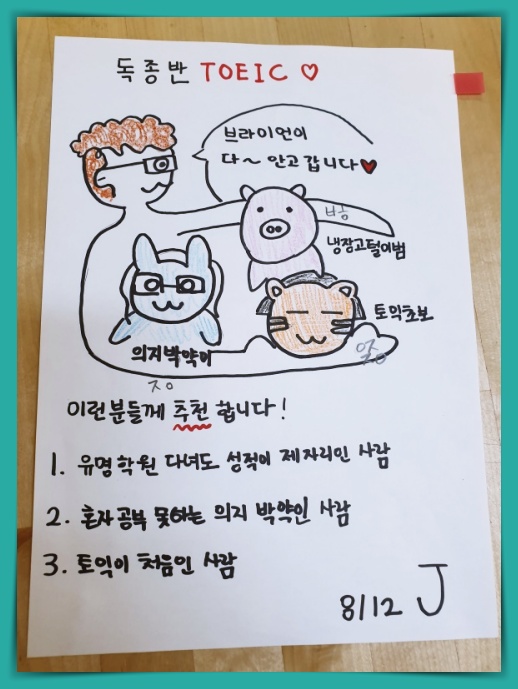 독종반 TOEIC ♡
브라이언이
다~ 안고 갑니다♥
냉장고털이범
토익초보
의지박약이
이런분들께 추천 합니다!
1. 유명학원 다녀도 성적이 제자리인 사람
2. 혼자공부 못하는 의지 박약인 사람
3. 토익이 처음인 사람
8/12 J